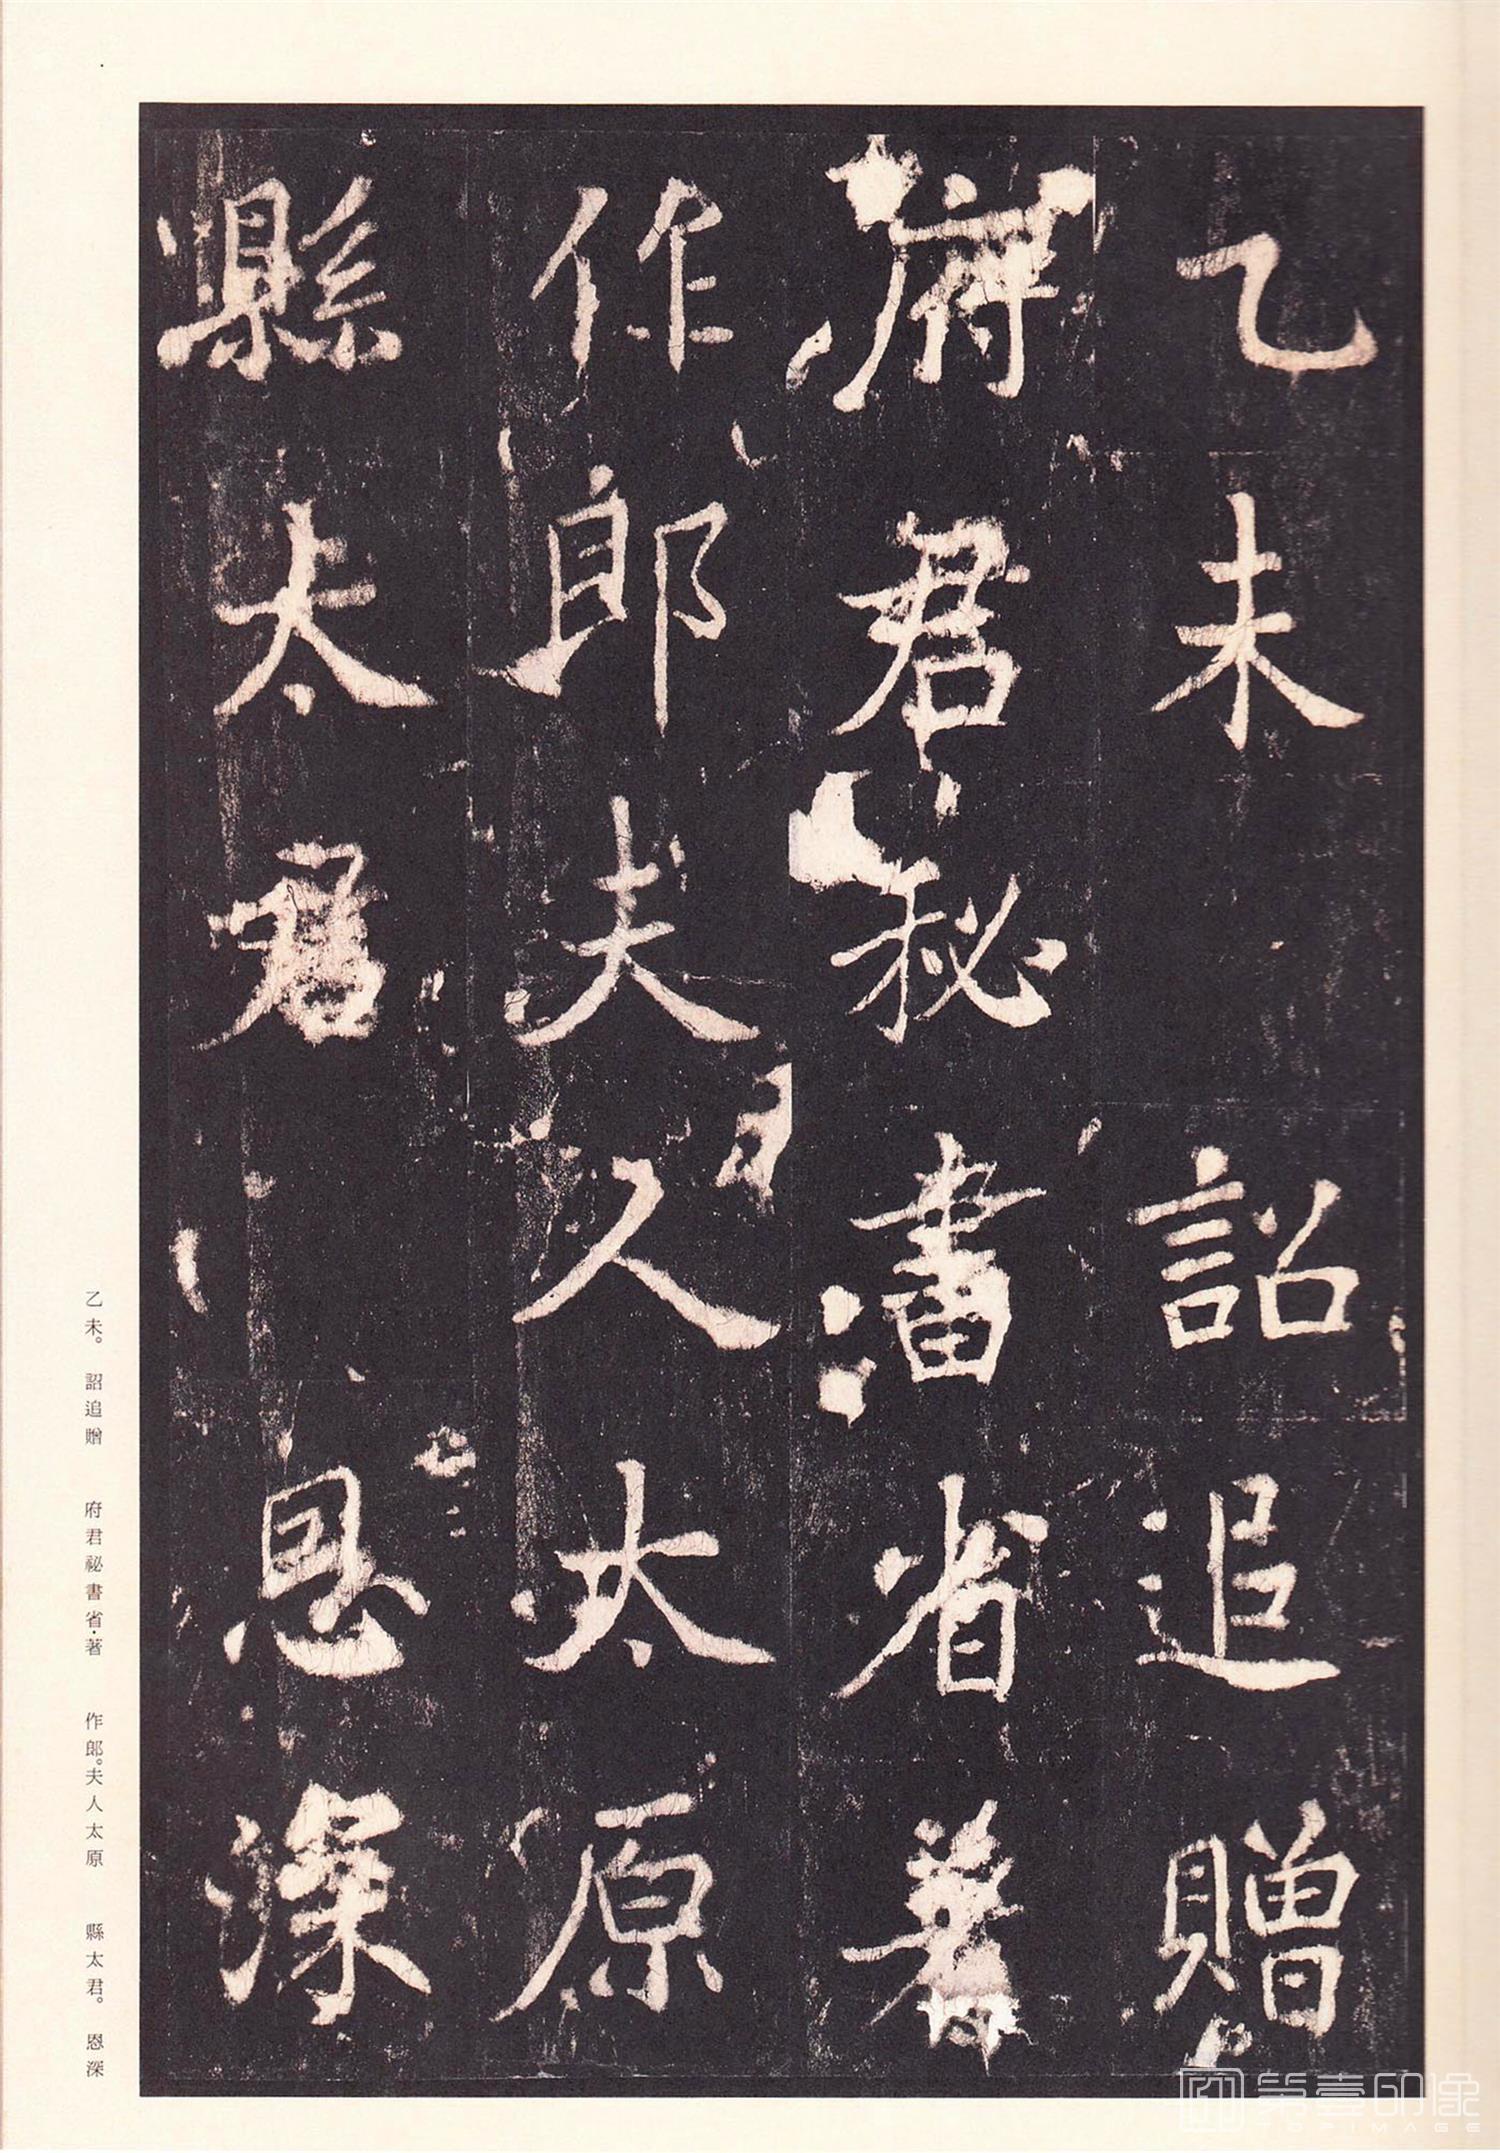 乙未 詔追贈
府君秘書省著
作郎夫人太原
縣太君 恩深
乙未。 詔追贈 府君祕書省·著 作郎。夫人太原 縣太君。 恩深
第壹印像
TOPIMAGE